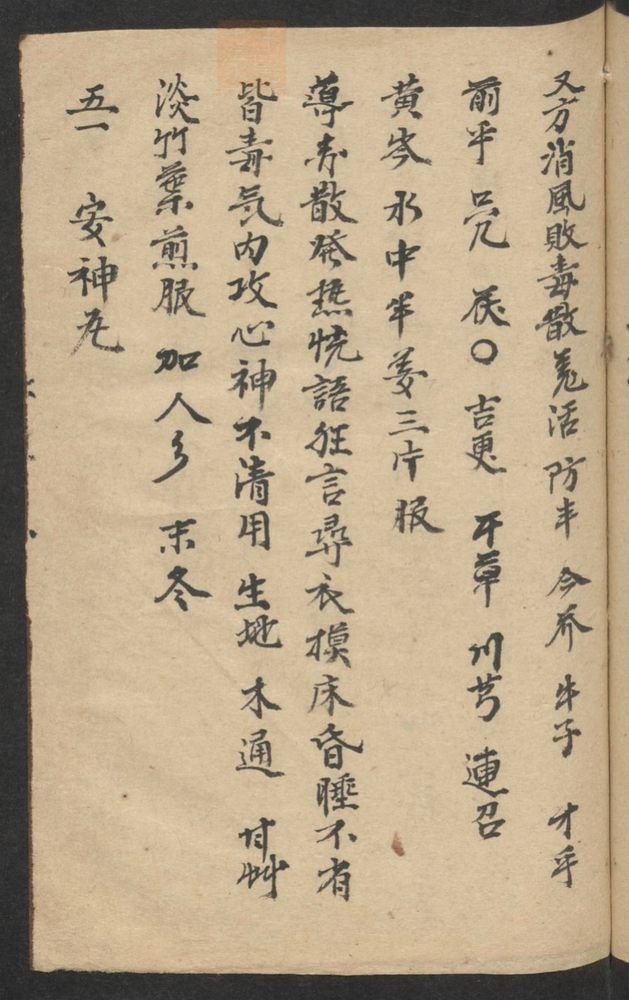 又方消風敗毒散羌活 防丰 今芥 牛子 才乎
前乎 只壳 茯〇 吉更 干草 川芎 連召
黄芩 水中半姜三片服
導赤散發热恍語狂言尋衣摸床昏睡不省
皆毒気内攻心神不清用 生地 木通 甘艸
淡竹葉煎服 加人 冬
五一 安神丸